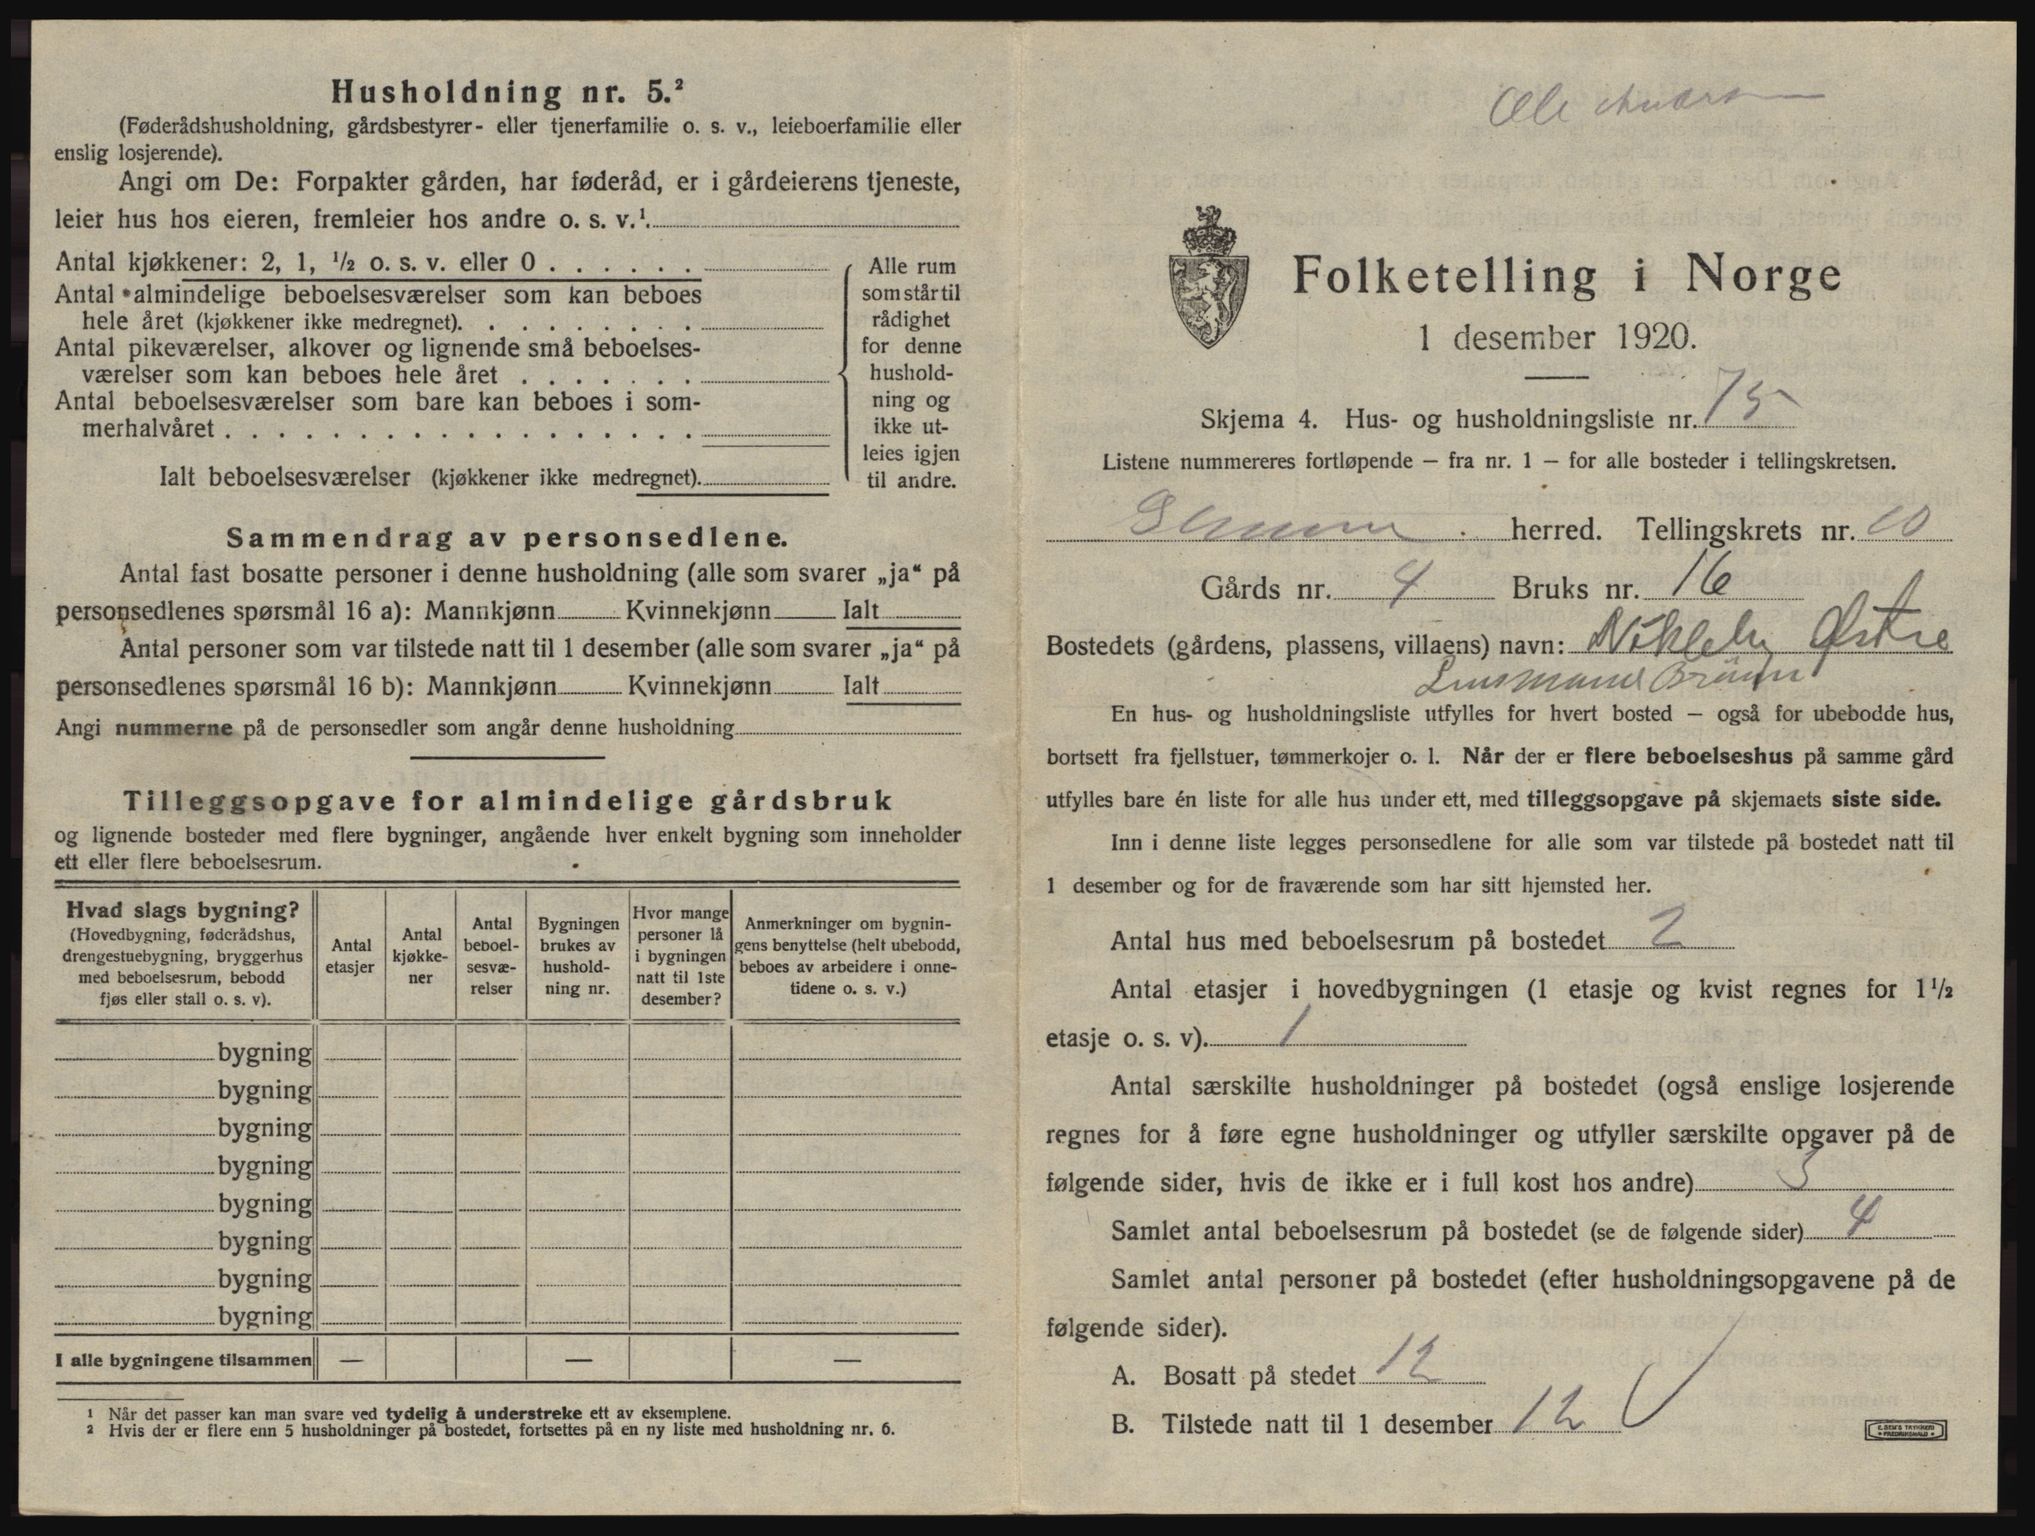 Husholdning nr. 5.²
(Føderådshusholdning, gårdsbestyrer- eller tjenerfamilie o. s. v., leieboerfamilie eller
enslig losjerende).
Angi om De: Forpakter gården, har føderåd, er i gårdeierens tjeneste,
leier hus hos eieren, fremleier hos andre o. s. v.¹.
Antal kjøkkener: 2, 1, ½ o. s. v. eller 0 . . . . . .
Antal almindelige beboelsesværelser som kan beboes
hele året (kjøkkener ikke medregnet). . . . . . . . . .
Antal pikeværelser, alkover og lignende små beboelses-
værelser som kan beboes hele året . . . . . . .
Antal beboelsesværelser som bare kan beboes i som-
merhalvåret . . . . . . . . . . . . . . . . . .
Ialt beboelsesværelser (kjøkkener ikke medregnet).
Alle rum
som står til
rådighet
for denne
hushold-
ning og
ikke ut-
leies igjen
til andre.
Sammendrag av personsedlene.
Antal fast bosatte personer i denne husholdning (alle som svarer „ja“ på
personsedlenes spørsmål 16 a): Mannkjønn Kvinnekjønn Ialt
Antal personer som var tilstede natt til 1 desember (alle som svarer „ja“ på
personsedlenes spørsmål 16 b): Mannkjønn Kvinnekjønn Ialt
Angi nummerne på de personsedler som angår denne husholdning
Tilleggsopgave for almindelige gårdsbruk
og lignende bosteder med flere bygninger, angående hver enkelt bygning som inneholder
ett eller flere beboelsesrum.
Hvad slags bygning?
(Hovedbygning, føderådshus,
drengestuebygning, bryggerhus
med beboelsesrum, bebodd
fjøs eller stall o. s. v).
Antal
etasjer
Antal
kjøkke-
ner
Antal
beboel-
sesvæ-
relser
Bygningen
brukes av
hushold-
ning nr.
Hvor mange
personer lå
i bygningen
natt til 1ste
desember?
Anmerkninger om bygnin-
gens benyttelse (helt ubebodd,
beboes av arbeidere i onne-
tidene o. s. v.)
bygning
bygning
bygning
bygning
bygning
bygning
bygning
bygning
I alle bygningene tilsammen — — —
¹ Når det passer kan man svare ved tydelig å understreke ett av eksemplene.
² Hvis der er flere enn 5 husholdninger på bostedet, fortsettes på en ny liste med husholdning nr. 6.
Ole
Folketelling i Norge
1 desember 1920.
Skjema 4. Hus- og husholdningsliste nr. 75
Listene nummereres fortløpende – fra nr. 1 – for alle bosteder i tellingskretsen.
herred. Tellingskrets nr. 10
Gårds nr. 4 Bruks nr. 16
Bostedets (gårdens, plassens, villaens) navn: Nikleby Østre
En hus- og husholdningsliste utfylles for hvert bosted – også for ubebodde hus,
bortsett fra fjellstuer, tømmerkojer o. l. Når der er flere beboelseshus på samme gård
utfylles bare én liste for alle hus under ett, med tilleggsopgave på skjemaets siste side.
Inn i denne liste legges personsedlene for alle som var tilstede på bostedet natt til
1 desember og for de fraværende som har sitt hjemsted her.
Antal hus med beboelsesrum på bostedet 2
Antal etasjer i hovedbygningen (1 etasje og kvist regnes for 1½
etasje o. s. v). 1
Antal særskilte husholdninger på bostedet (også enslige losjerende
regnes for å føre egne husholdninger og utfyller særskilte opgaver på de
følgende sider, hvis de ikke er i full kost hos andre) 3
Samlet antal beboelsesrum på bostedet (se de følgende sider) 4
Samlet antal personer på bostedet (efter husholdningsopgavene på de
følgende sider).
A. Bosatt på stedet 12
B. Tilstede natt til 1 desember 12